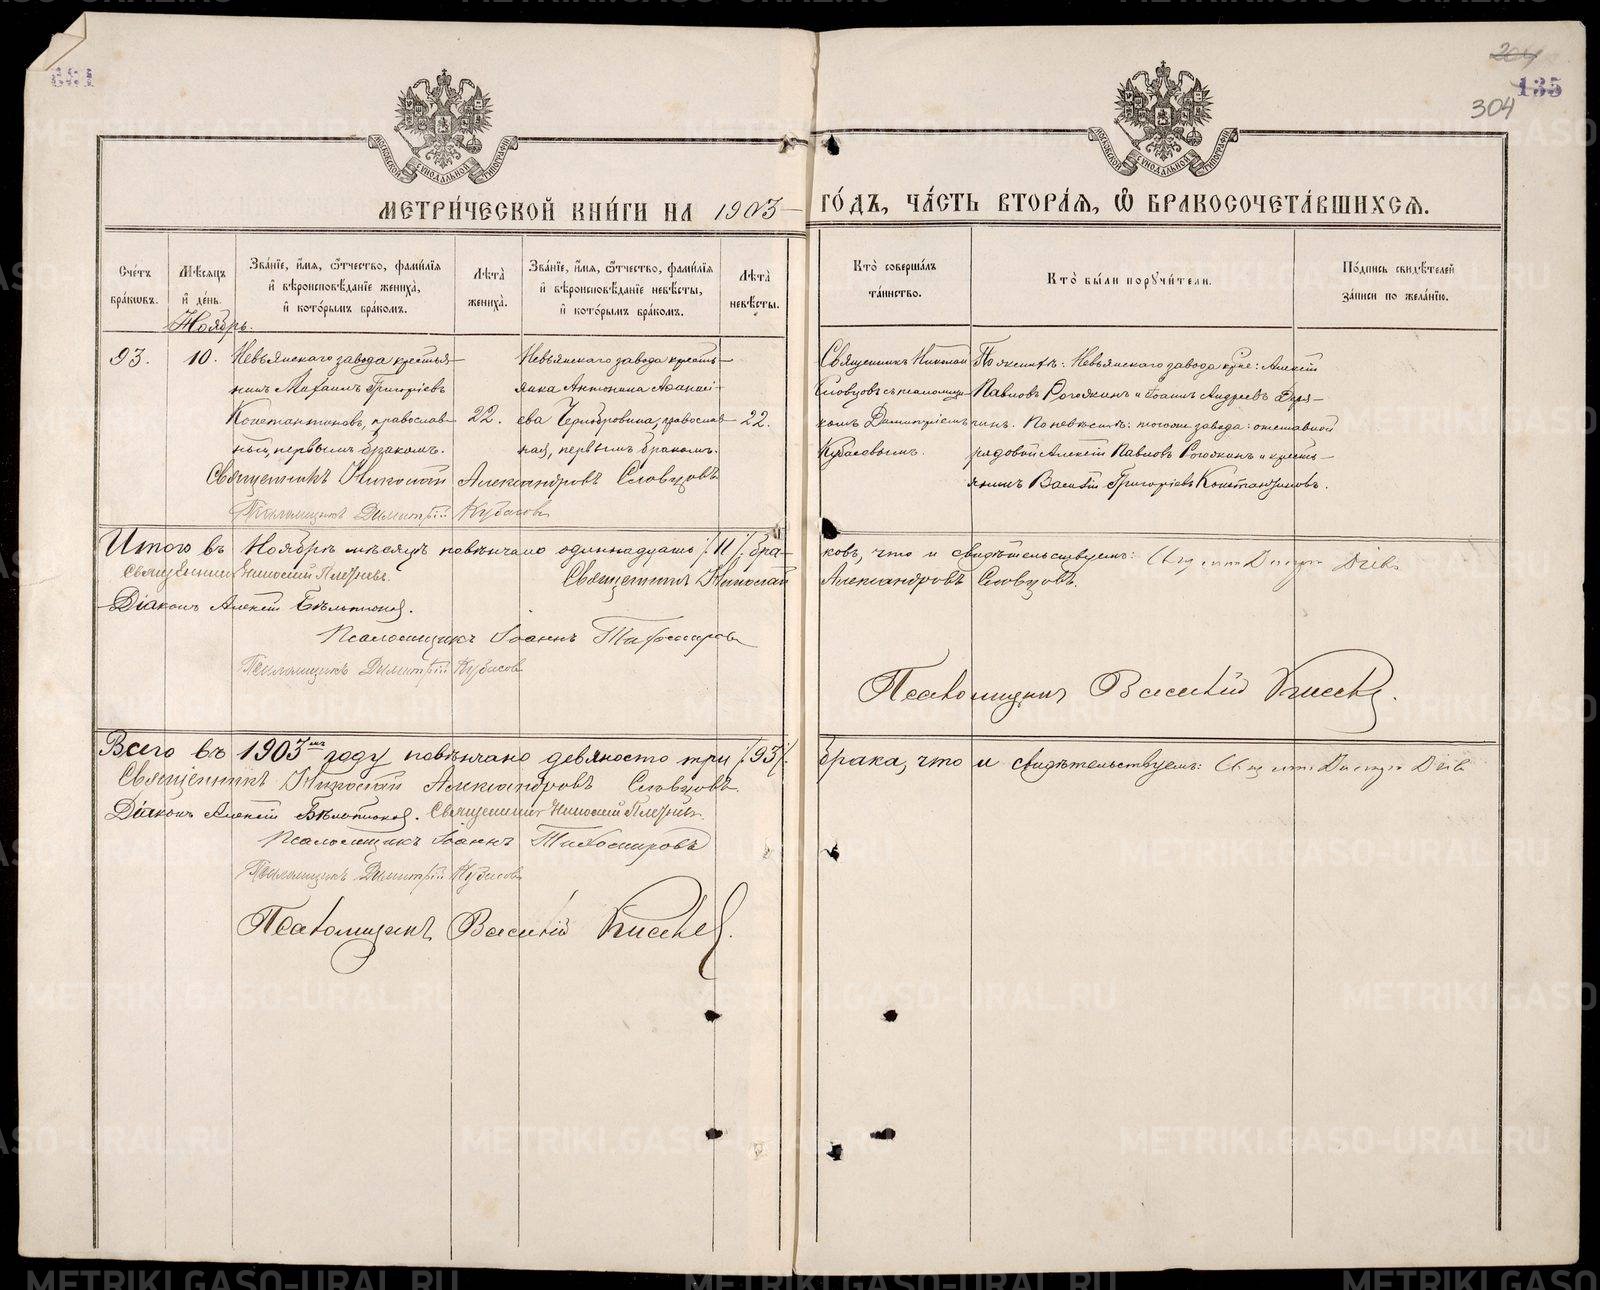 304
135
МЕТРИ́ЧЕСКОЙ КНИ́ГИ НА 1903
ГО́ДЪ, ЧА́СТЬ ВТОРА́Я, Ѡ҆ БРАКОСОЧЕТА́ВШИХСЯ.
Сче́тъ
бра́кѡвъ.
Мѣ́сяцъ
и҆ де́нь.
Зва́нїе, и҆́мя, ѻ҆́тчество, фами́лїя
и҆ вѣроисповѣ́данїе жениха̀,
и҆ кото́рымъ бра́комъ.
Лѣ́та̀
жениха̀.
Зва́нїе, и҆́мя, ѻ҆́тчество, фами́лїя
и҆ вѣроисповѣ́данїе невѣ́сты,
и҆ кото́рымъ бра́комъ.
Лѣ́та̀
невѣ́сты.
Кто̀ соверша́лъ
та́инство.
Кто̀ бы́ли порꙋчи́тели.
По́дпись свидѣ́телей
за́писи по жела́нїю.
Ноябрь.
93.
10.
Невьянскаго завода крестья-
нинъ Михаилъ Григоріевъ
Константиновъ, православ-
ный, первымъ бракомъ.
22.
Невьянскаго завода кресть-
янка Антонина Аѳанась-
ева Чернобровина, православ-
ная, первымъ бракомъ.
22.
Священникъ Николай
Словцовъ съ псаломщи-
комъ Димитріемъ
Кубасовымъ.
По женихѣ: Невьянскаго завода кр-не: Алексѣй
Павловъ Рогожинъ и Іоаннъ Андреевъ
По невѣстѣ: тогоже завода: отставной
рядовой Алексѣй Павловъ Рогожинъ и кресть-
янинъ Василій Григорьевъ Константиновъ.
Священникъ Николай Александровъ Словцовъ
Псаломщикъ Димитрій Кубасовъ
Итого въ Ноябрѣ мѣсяцѣ повѣнчано одиннадцать /11/ бра-
ковъ, что и свидѣтельствуемъ:
Священникъ Николай
Священникъ Николай
Александровъ Словцовъ.
Діаконъ Алексій
Псаломщикъ Іоаннъ Тихомировъ
Псаломщикъ Димитрій Кубасовъ
Псаломщикъ Василій
Всего въ 1903мъ году повѣнчано девяносто три /93/
брака, что и свидѣтельствуемъ:
Священникъ Николай Александровъ Словцовъ.
Діаконъ Алексій
Священникъ Николай
Псаломщикъ Іоаннъ Тихомировъ
Псаломщикъ Димитрій Кубасовъ
Псаломщикъ Василій
METRIKI.GASO-URAL.RU